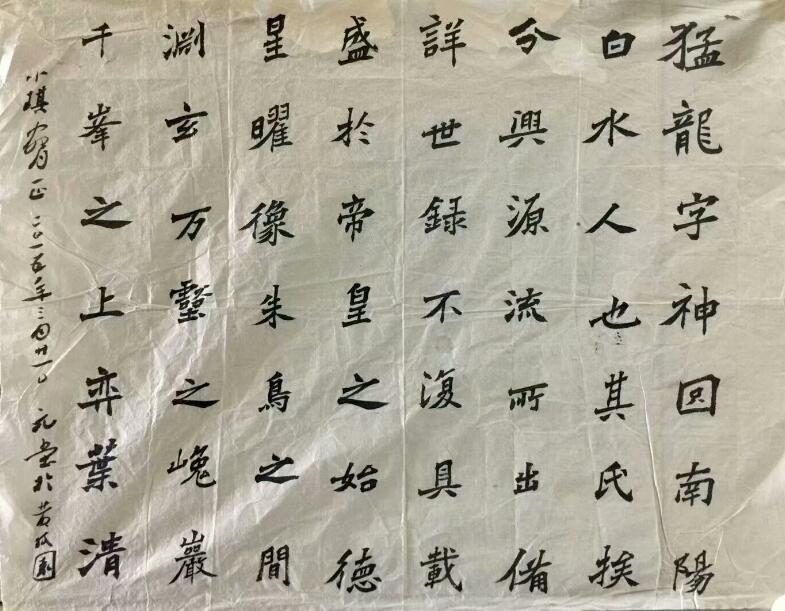 猛龍字神囘南陽
白水人也其氏族
分興源流所出備
詳世録不復具載
盛於帝皇之始德
星曜像朱鳥之間
淵玄万壑之峗巖
千峯之上弈葉清
小琪 一正 二〇一五年三月廿一日 元 於黄 園